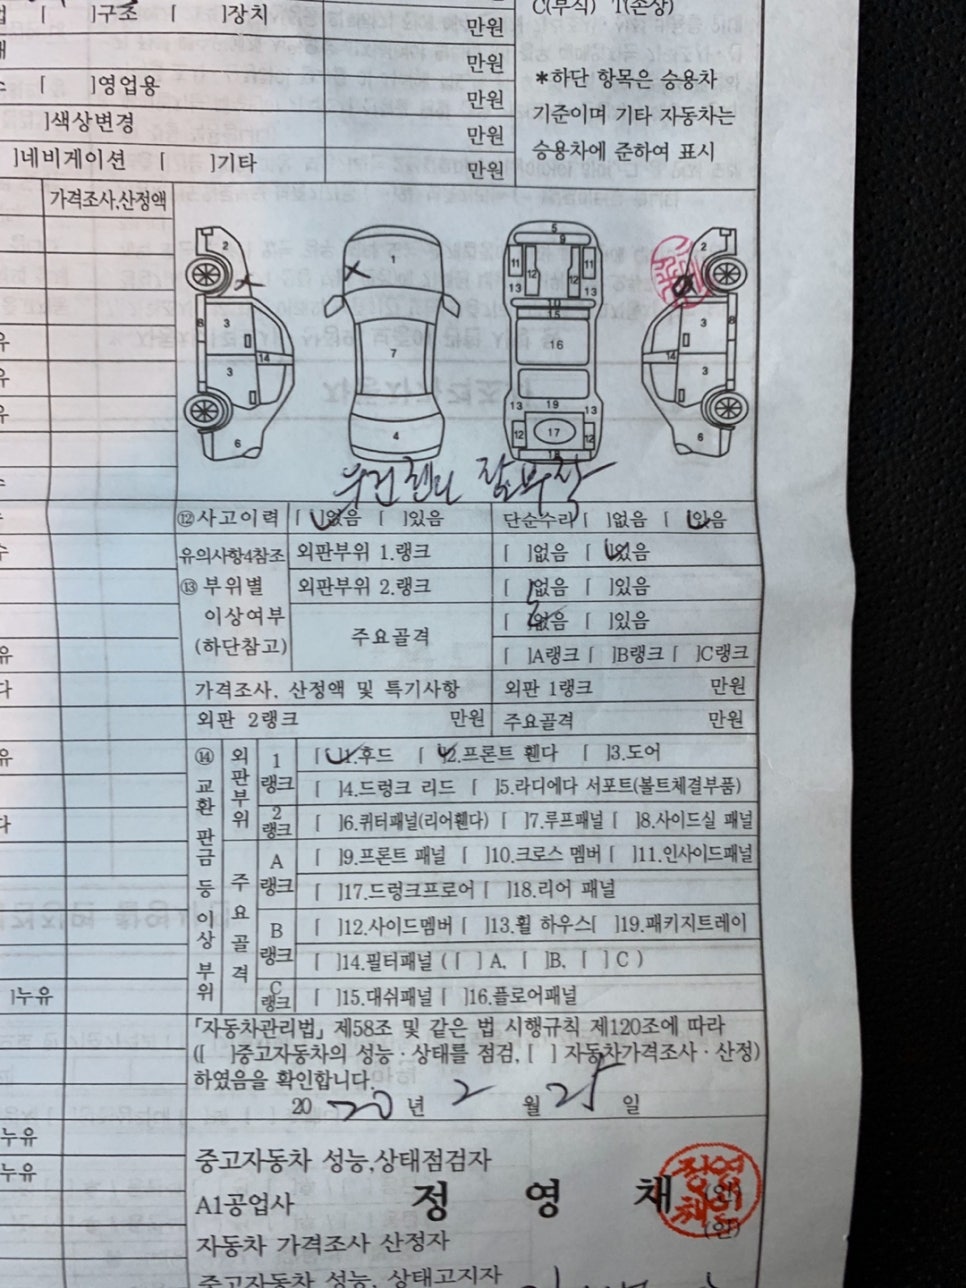 [ ]구조 [ ]장치
만원
C(부식) T(손상)
만원
*하단 항목은 승용차
[ ]영업용
만원
기준이며 기타 자동차는
]색상변경
만원
승용차에 준하여 표시
]네비게이션 [ ]기타
만원
가격조사,산정액
2
3
8
14
3
6
1
7
4
5
9
11
12
12
11
13
13
10
15
16
13
19
13
12
17
12
18
2
3
8
14
3
6
⑫사고이력 [ ]없음 [ ]있음 단순수리 [ ]없음 [ ]있음
유의사항4참조 외판부위 1.랭크 [ ]없음 [ ]있음
⑬ 부위별 외판부위 2.랭크 [ ]없음 [ ]있음
이상여부 주요골격 [ ]없음 [ ]있음
(하단참고) [ ]A랭크 [ ]B랭크 [ ]C랭크
가격조사, 산정액 및 특기사항 외판 1랭크 만원
외판 2랭크 만원 주요골격 만원
⑭ 교환 판금 등 이상 부위
외판부위 1랭크 [ ]1.후드 [ ]2.프론트 휀다 [ ]3.도어
[ ]4.드렁크 리드 [ ]5.라디에다 서포트(볼트체결부품)
2랭크 [ ]6.퀴터패널(리어휀다) [ ]7.루프패널 [ ]8.사이드실 패널
주요골격 A랭크 [ ]9.프론트 패널 [ ]10.크로스 멤버 [ ]11.인사이드패널
[ ]17.드렁크프로어 [ ]18.리어 패널
B랭크 [ ]12.사이드멤버 [ ]13.휠 하우스[ ]19.패키지트레이
[ ]14.필터패널 ( [ ] A, [ ]B, [ ] C )
C랭크 [ ]15.대쉬패널 [ ]16.플로어패널
]누유
「자동차관리법」 제58조 및 같은 법 시행규칙 제120조에 따라
([ ]중고자동차의 성능·상태를 점검, [ ] 자동차가격조사·산정)
하였음을 확인합니다.
20 20 년 2 월 25 일
누유
중고자동차 성능,상태점검자
누유
A1공업사 정 영 채 (인)
(인)
자동차 가격조사 산정자
중고자동차 성능, 상태고지자